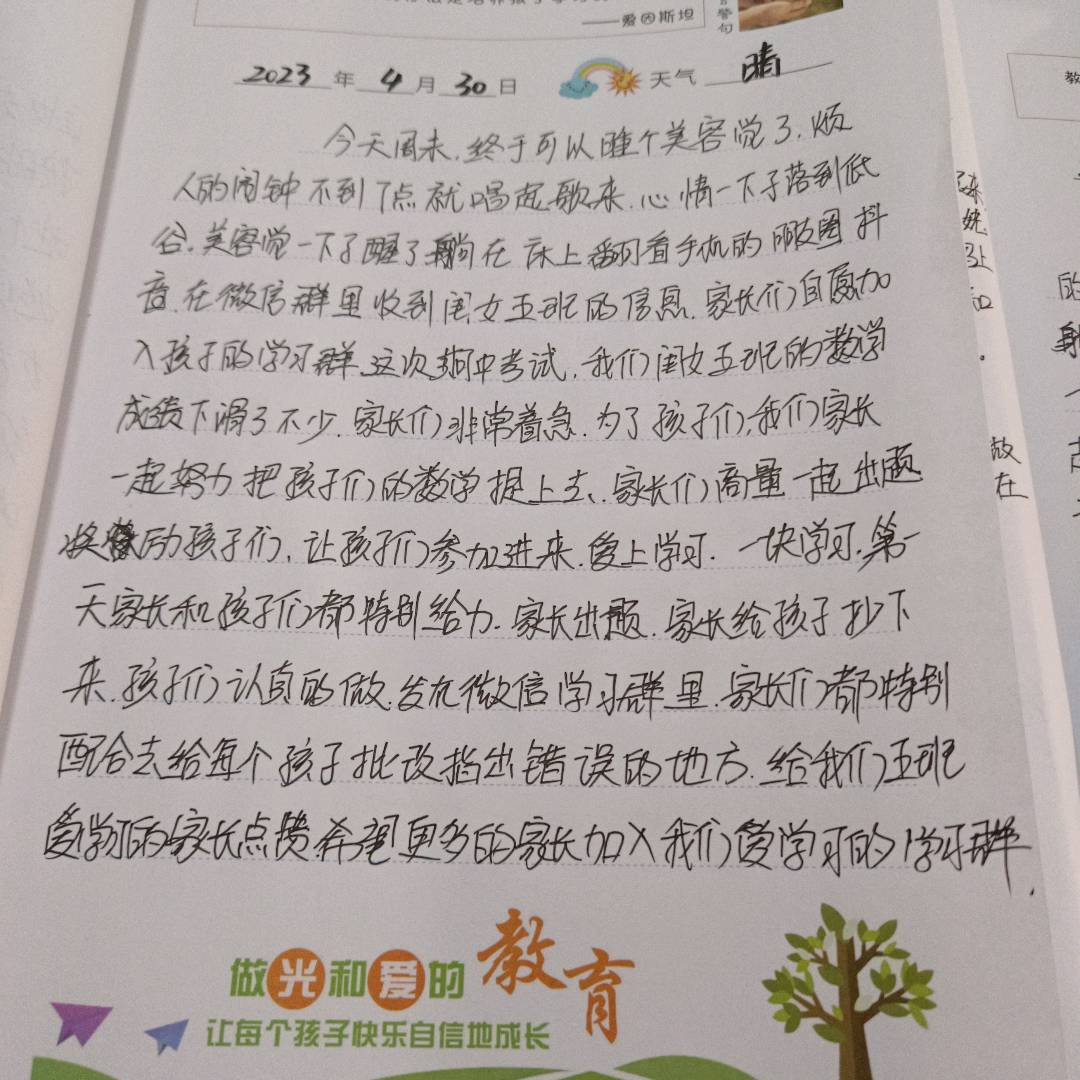 ——爱因斯坦
警句
2023年4月30日 天气 晴
今天周末.终于可以睡个美容觉了.烦
人的闹钟不到7点就唱起歌来.心情一下子落到低
谷.美容觉一下子醒了躺在床上翻看手机的朋友圈抖
音.在微信群里收到闺女五班的信息.家长们自愿加
入孩子的学习群.这次期中考试.我们闺女五班的数学
成绩下滑了不少.家长们非常着急.为了孩子们.我们家长
一起努力把孩子们的数学提上去.家长们商量一起出题
奖励孩子们.让孩子们参加进来.爱上学习.一块学习.第一
天家长和孩子们都特别给力.家长出题.家长给孩子抄下
来.孩子们认真的做.发在微信学习群里.家长们都特别
配合去给每个孩子批改指出错误的地方.给我们五班
爱学习的家长点赞.希望更多的家长加入我们爱学习的学习群.
做光和爱的教育
让每个孩子快乐自信地成长
教
的
放
在